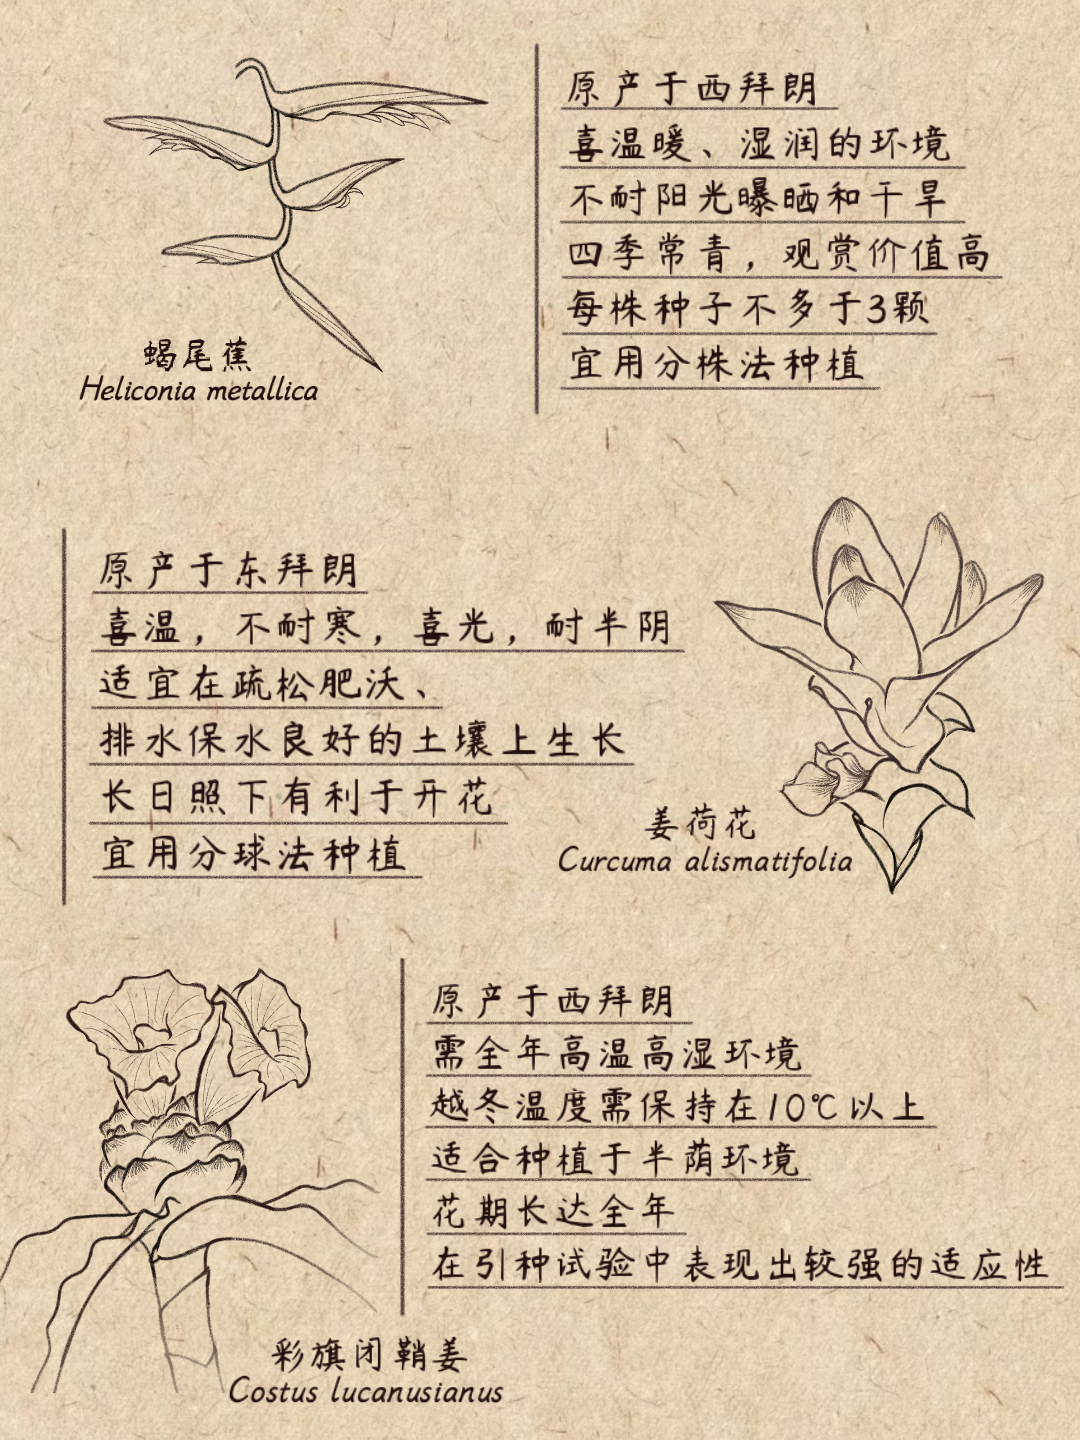 原产于西拜朗
喜温暖、湿润的环境
不耐阳光曝晒和干旱
四季常青，观赏价值高
每株种子不多于3颗
宜用分株法种植
蝎尾蕉
Heliconia metallica
原产于东拜朗
喜温，不耐寒，喜光，耐半阴
适宜在疏松肥沃、
排水保水良好的土壤上生长
长日照下有利于开花
宜用分球法种植
姜荷花
Curcuma alismatifolia
原产于西拜朗
需全年高温高湿环境
越冬温度需保持在10℃以上
适合种植于半荫环境
花期长达全年
在引种试验中表现出较强的适应性
彩旗闭鞘姜
Costus lucanusianus